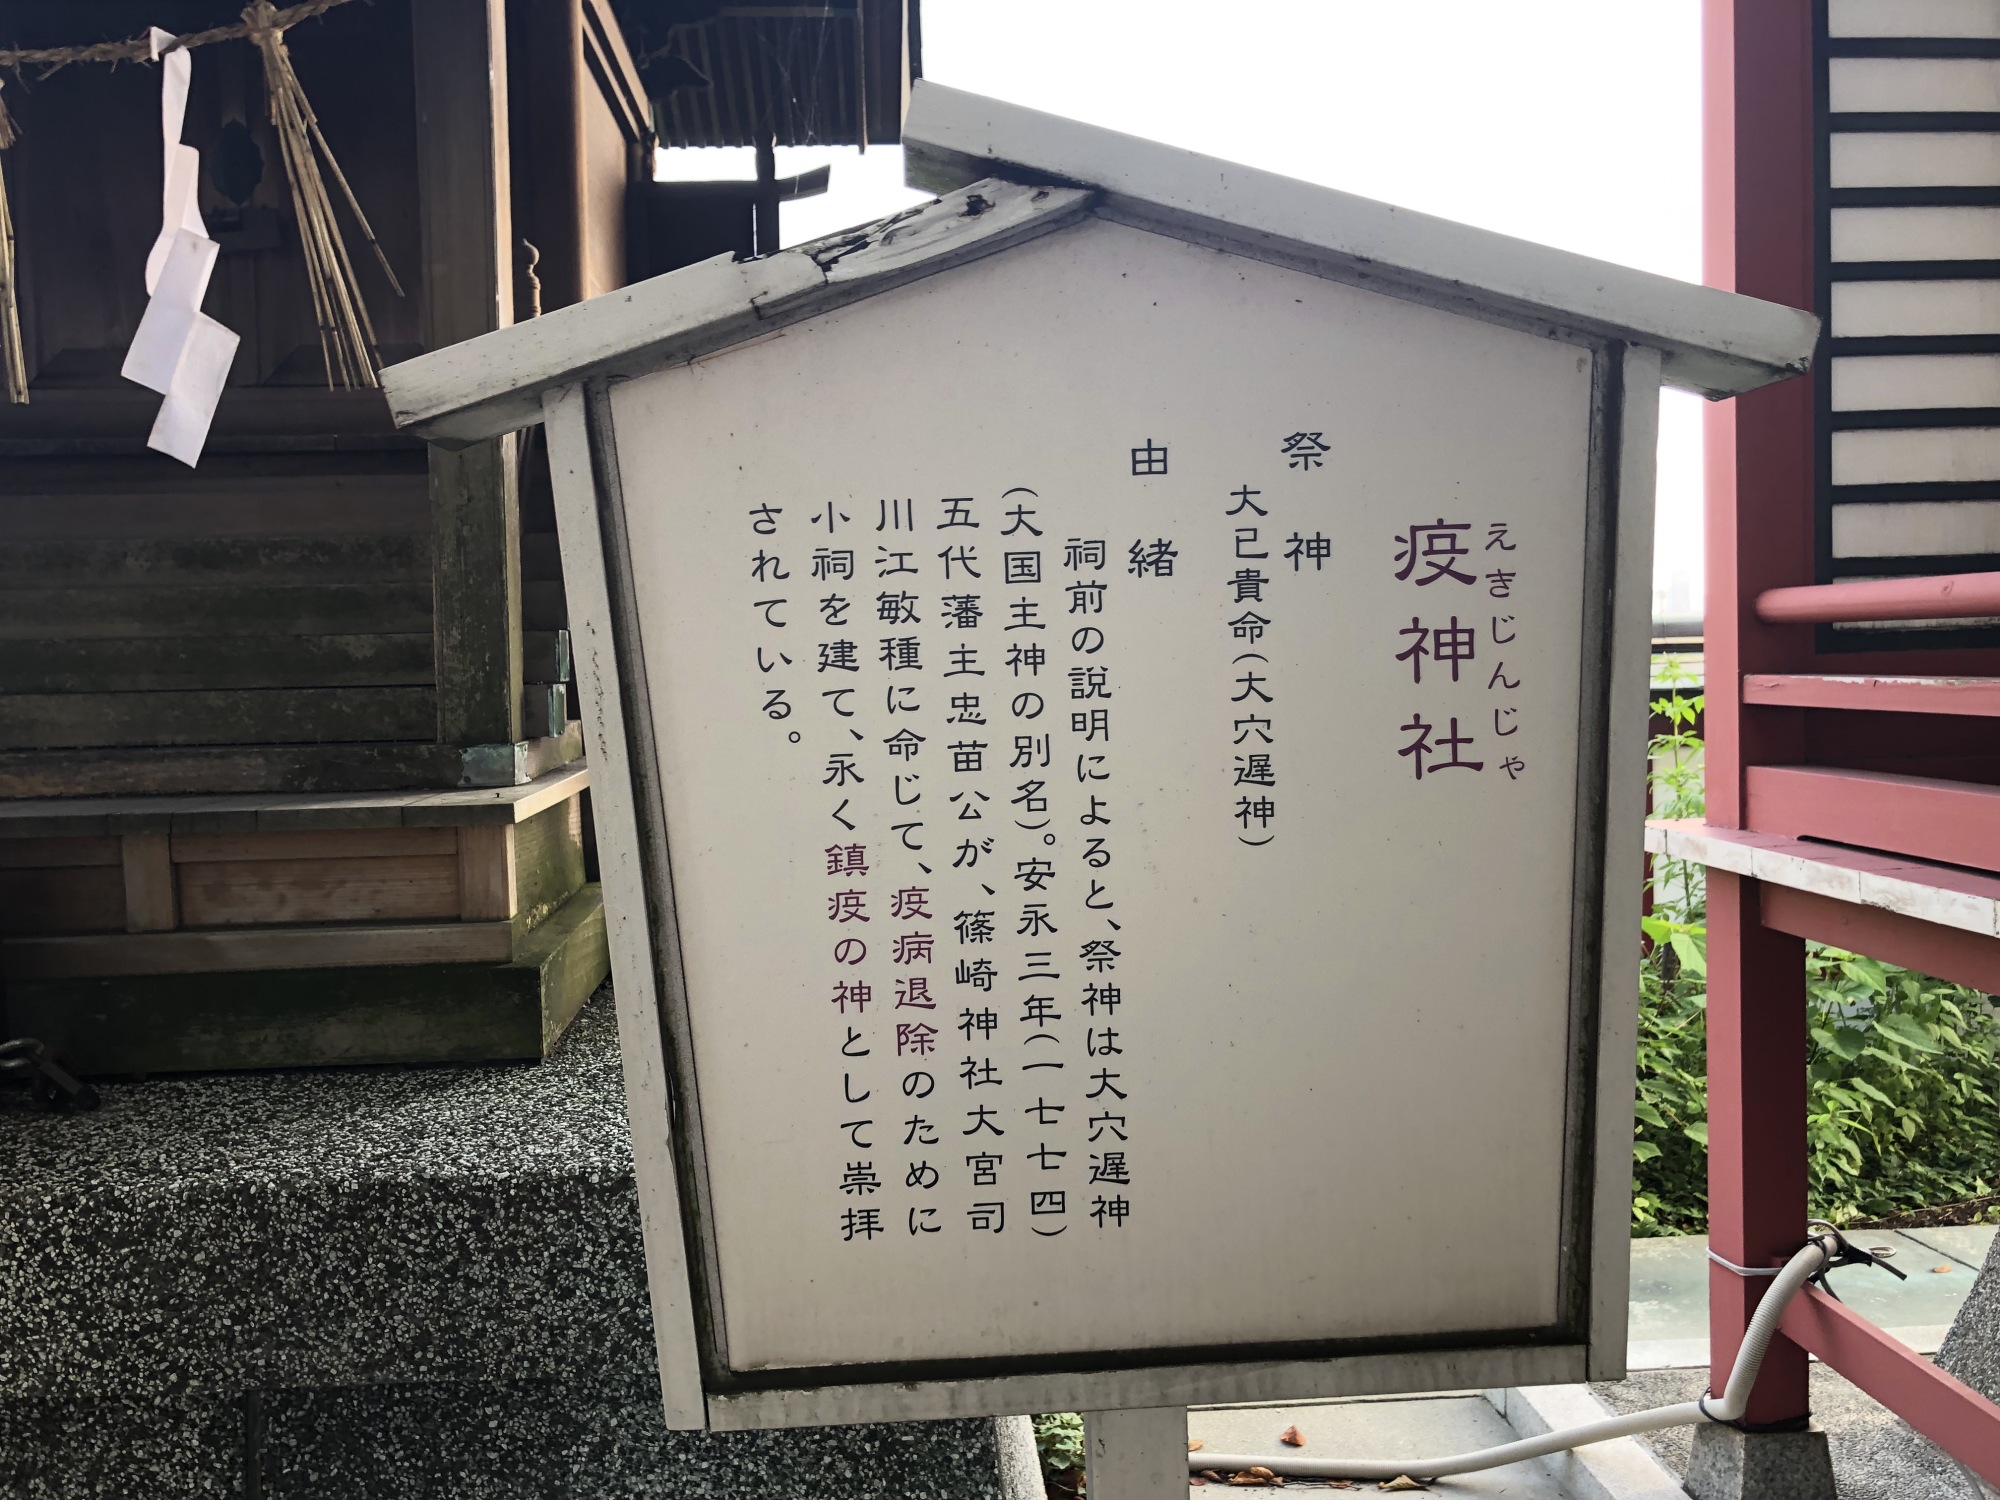 疫神社
えきじんじゃ
祭神
大已貴命(大穴遅神)
由緒
祠前の説明によると、祭神は大穴遅神
(大国主神の別名)。安永三年(一七七四)
五代藩主忠苗公が、篠崎神社大宮司
川江敏種に命じて、疫病退除のために
小祠を建て、永く鎮疫の神として崇拝
されている。